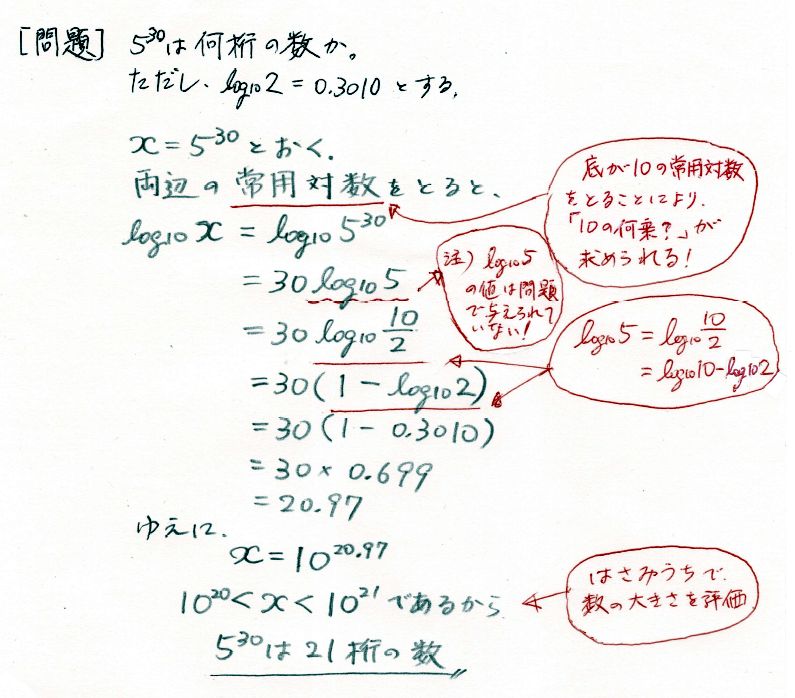 [問題] 5³⁰は何桁の数か。
ただし、log₁₀2 = 0.3010 とする。
x = 5³⁰ とおく。
両辺の常用対数をとると、
log₁₀x = log₁₀5³⁰
= 30 log₁₀5
= 30 log₁₀ 10/2
= 30 (1 - log₁₀2)
= 30 (1 - 0.3010)
= 30 × 0.699
= 20.97
ゆえに、
x = 10²⁰·⁹⁷
10²⁰ < x < 10²¹ であるから
5³⁰は 21 桁の数
底が10の常用対数
をとることにより、
「10の何乗?」が
求められる!
注) log₁₀5
の値は問題
で与えられて
いない!
log₁₀5 = log₁₀ 10/2
= log₁₀10 - log₁₀2
はさみうちで、
数の大きさを評価